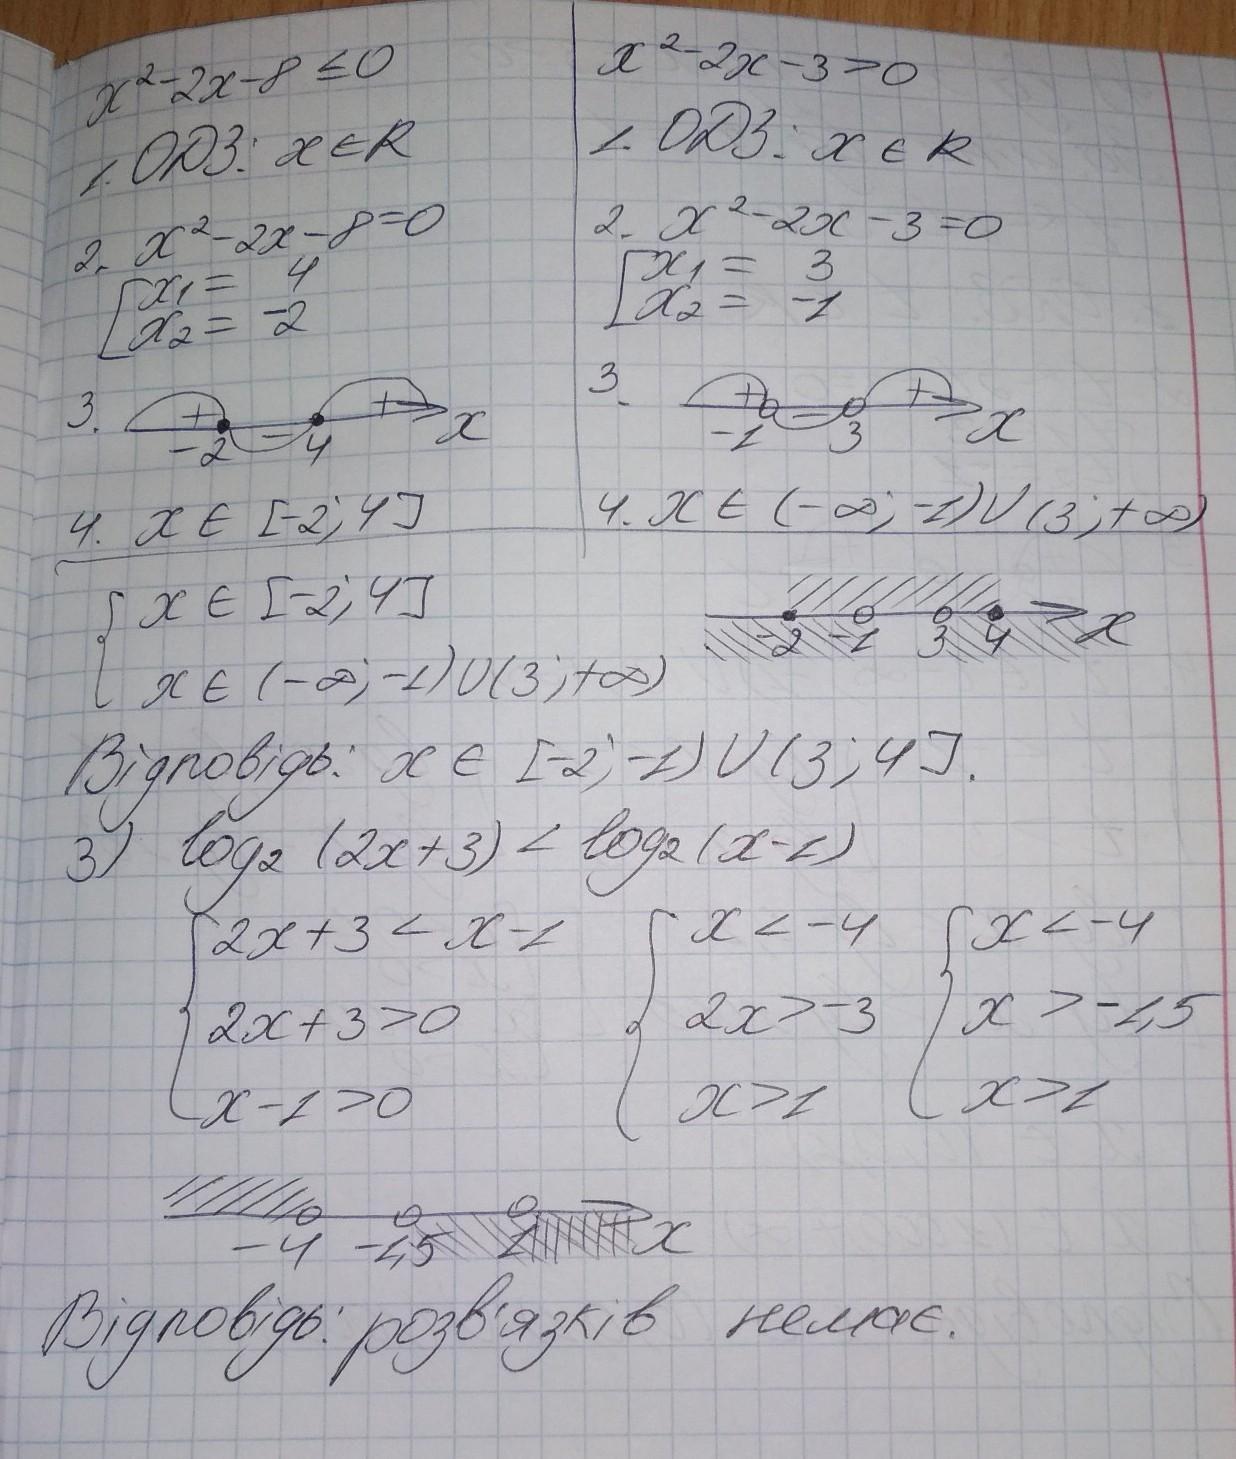 x²-2x-8≤0
1. ОДЗ: x∈R
2. x²-2x-8=0
[x₁= 4
x₂= -2
3. + - + -2 4 x
4. x∈[-2;4]
x²-2x-3>0
1. ОДЗ: x∈R
2. x²-2x-3=0
[x₁= 3
x₂= -1
3. + - + -1 3 x
4. x∈(-∞;-1)∪(3;+∞)
{x∈[-2;4]
x∈(-∞;-1)∪(3;+∞)
-2 -1 3 4 x
Відповідь: x∈[-2;-1)∪(3;4].
3) log₂(2x+3)<log₂(x-1)
{2x+3<x-1 {x<-4 {x<-4
2x+3>0 2x>-3 x>-1,5
x-1>0 x>1 x>1
-4 -1,5 1 x
Відповідь: розв'язків немає.